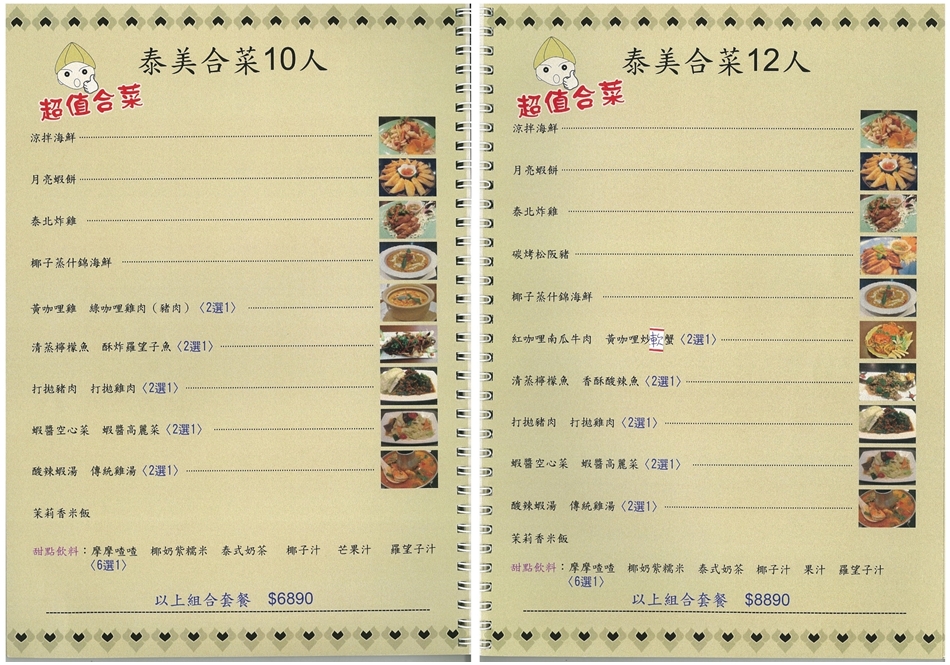 泰美合菜10人
超值合菜
涼拌海鮮
月亮蝦餅
泰北炸雞
椰子蒸什錦海鮮
黃咖哩雞 綠咖哩雞肉（豬肉）〈2選1〉
清蒸檸檬魚 酥炸羅望子魚〈2選1〉
打拋豬肉 打拋雞肉〈2選1〉
蝦醬空心菜 蝦醬高麗菜〈2選1〉
酸辣蝦湯 傳統雞湯〈2選1〉
茉莉香米飯
甜點飲料：摩摩喳喳 椰奶紫糯米 泰式奶茶 椰子汁 芒果汁 羅望子汁
〈6選1〉
以上組合套餐 $6890
泰美合菜12人
超值合菜
涼拌海鮮
月亮蝦餅
泰北炸雞
碳烤松阪豬
椰子蒸什錦海鮮
紅咖哩南瓜牛肉 黃咖哩炒軟蟹〈2選1〉
清蒸檸檬魚 香酥酸辣魚〈2選1〉
打拋豬肉 打拋雞肉〈2選1〉
蝦醬空心菜 蝦醬高麗菜〈2選1〉
酸辣蝦湯 傳統雞湯〈2選1〉
茉莉香米飯
甜點飲料：摩摩喳喳 椰奶紫糯米 泰式奶茶 椰子汁 果汁 羅望子汁
〈6選1〉
以上組合套餐 $8890